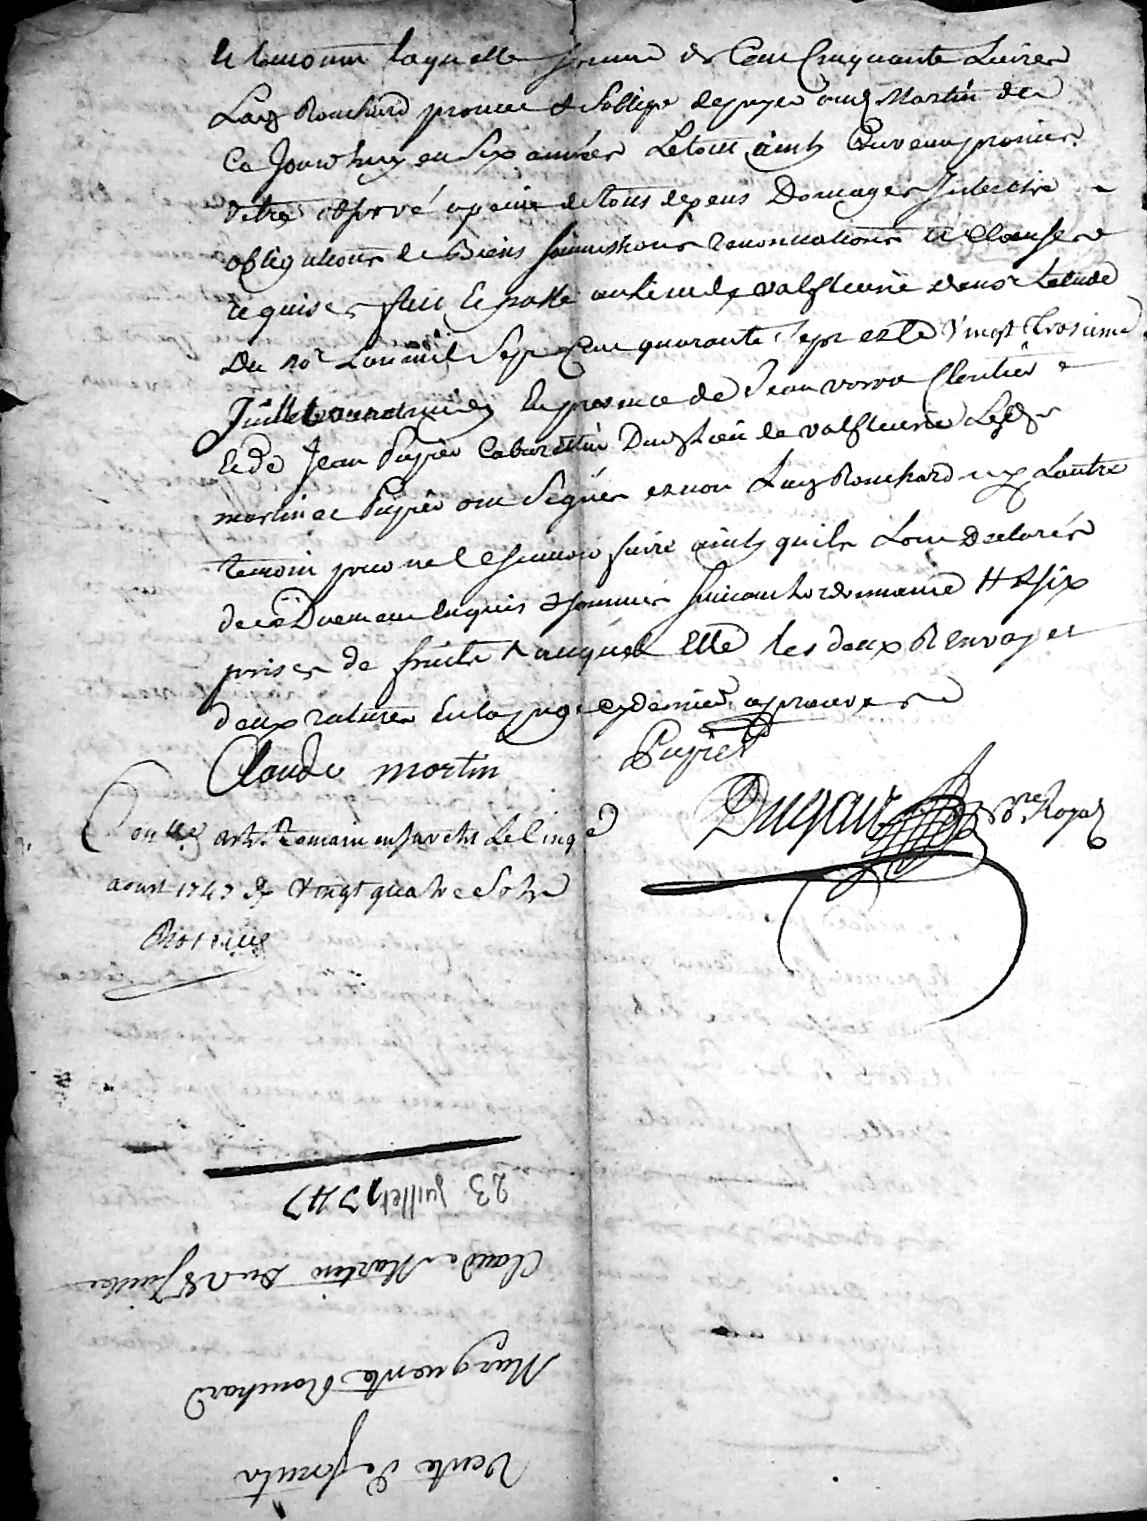 laquelle somme de Cent Cinquante Livres
Lad Ronchard promet & soblige de payer aud Martin de
Ce Jourdhuy en Six années Le tout ainsy Convenu promis
detre observé a peine de tous depens Domages Interetz
obligations de Biens soumissions renonciations et Clauses
requises fait & passé au lieu de valfleurie Etude
Du no.re Lan mil Sept Cent quarante Sept et le Vingt Troisieme
Juillet En presence de Jean Cloutier
et de Jean Pupier Cabaretier Dud Lieu de valfleurie Lesd
martin et Pupier ont Signés et non Lad Ronchard ny Lautre
temoin pour ne le scavoir faire ainsy quils Lont Declarés
de ce Duement Enquis & sommés suivant Lordonnance # & six
prises de fruits les deux Renvoy et
deux ratures En la page cy derniere aprouvés
Claude martin
Pupier
Dugair no.re Royal
Con.lé St Romain en Jarestz Le Cinq
aoust 1747 R Vingt quatre Sols
23 Juillet 1747
Claude Martin Du 23 Juillet
Marguerite Ronchard
Vente de fruits